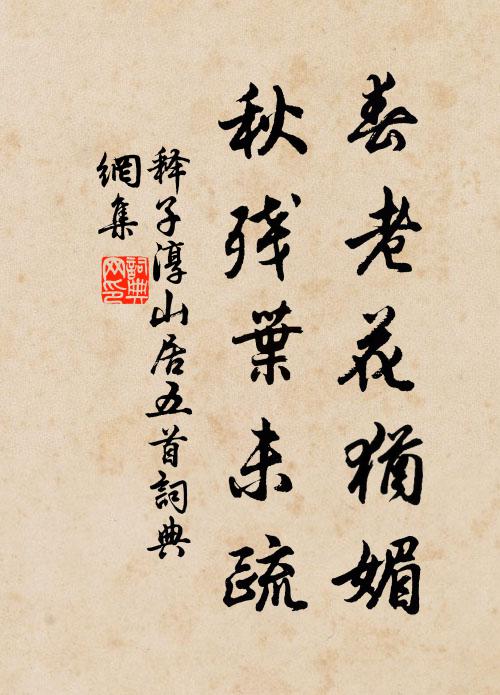 春老花猶媚
秋残葉未疏
释子淳山居五首詞典
網集
詞典
网印